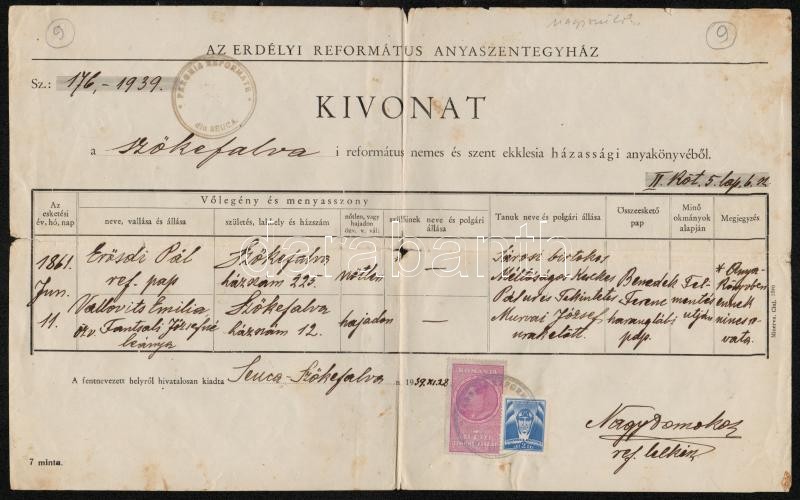 9
9
AZ ERDÉLYI REFORMÁTUS ANYASZENTEGYHÁZ
Sz.: 176,-1939.
PAROHIA REFORMATĂ
din SEUCA
KIVONAT
a Szőkefalva i református nemes és szent ekklesia házassági anyakönyvéből.
II. Köt. 5. lap. 6.
Az esketési év, hó, nap
Vőlegény és menyasszony
neve, vallása és állása
születés, lakhely és házszám
nőtlen, vagy hajadon özv. v. vál.
szülőinek neve és polgári állása
Tanuk neve és polgári állása
Összeeskető pap
Minő okmányok alapján
Megjegyzés
1861. Jun. 11.
Erősdi Pál
ref. pap
Szőkefalva
házszám 225.
nőtlen
—
—
Vallovits Emilia
özv. Jósefné
leánya
Szőkefalva
házszám 12.
hajadon
—
Sárosi birtokos
Méltóságos
Pál és Tekintetes
József
Benedek
Ferenc
haranglábi
pap.
Fel-
mentés
utján
* Anya-
könyvben
ennek
nincs ro-
vata.
Minerva, Cluj.
A fentnevezett helyről hivatalosan kiadta Seuca-Szőkefalva n 1939.XI.28
ROMANIA
Nagy Domokos
ref. lelkész
7 minta.
darabanth